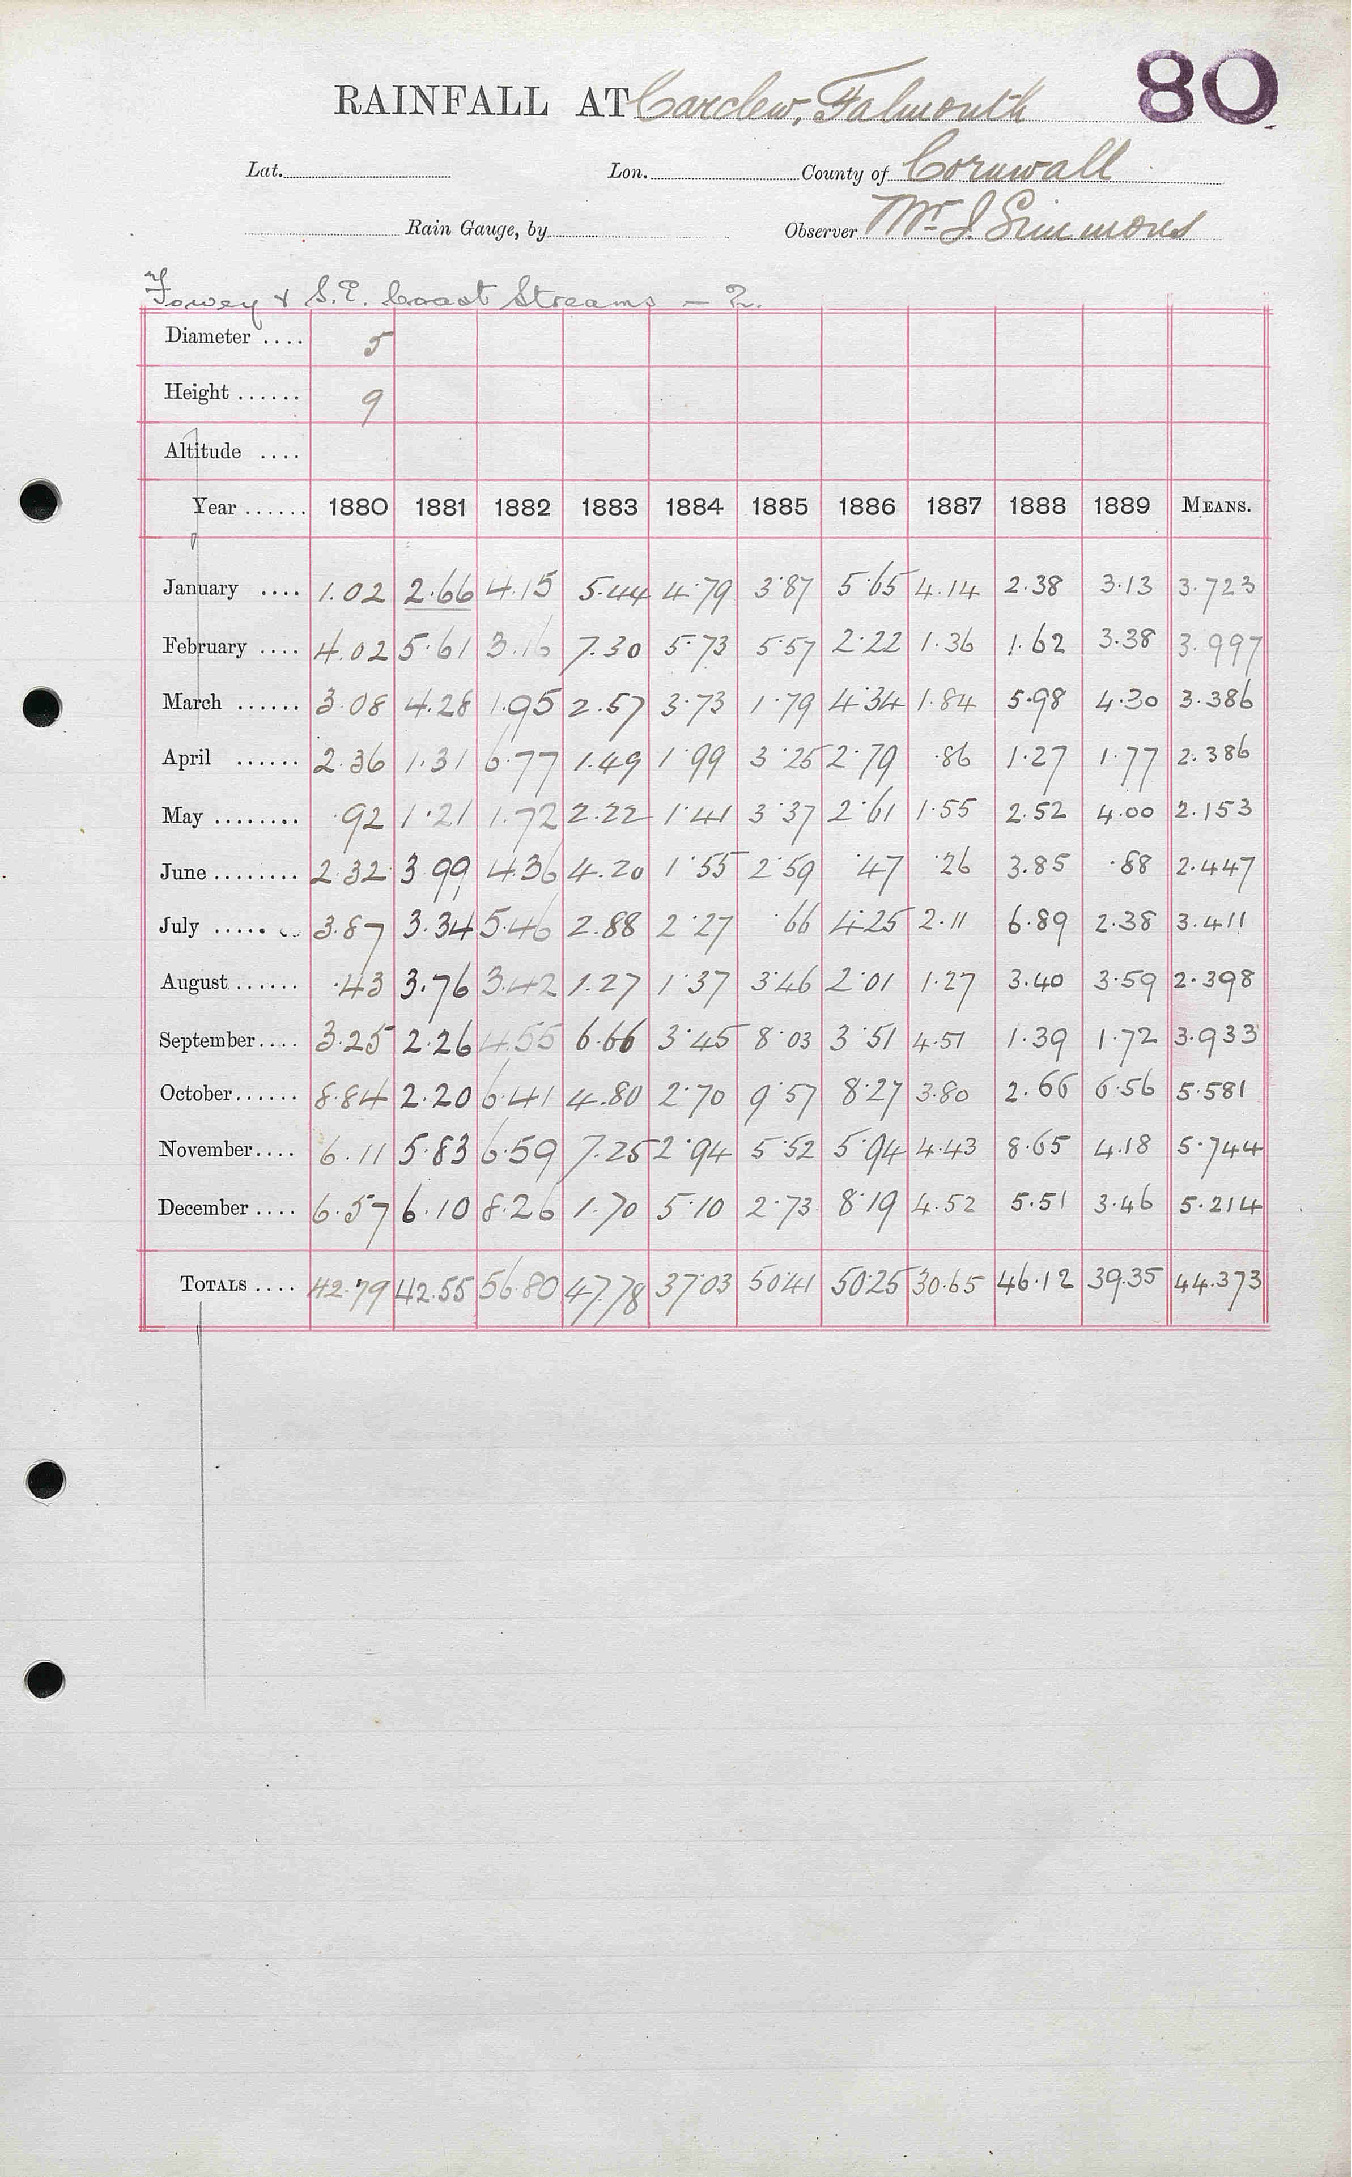 80
RAINFALL AT Carclew, Falmouth
Lat. Lon. County of Cornwall
Rain Gauge, by Observer Mr J. Simmons
Fowey & S.E. Coast Streams - 2.
Diameter .... 5
Height ...... 9
Altitude ....
Year ...... 1880 1881 1882 1883 1884 1885 1886 1887 1888 1889 MEANS.
January .... 1.02 2.66 4.15 5.44 4.79 3.87 5.65 4.14 2.38 3.13 3.723
February .... 4.02 5.61 3.16 7.30 5.73 5.57 2.22 1.36 1.62 3.38 3.997
March ...... 3.08 4.28 1.95 2.57 3.73 1.79 4.34 1.84 5.98 4.30 3.386
April ...... 2.36 1.31 6.77 1.49 1.99 3.25 2.79 .86 1.27 1.77 2.386
May ........ .92 1.21 1.72 2.22 1.41 3.37 2.61 1.55 2.52 4.00 2.153
June ........ 2.32 3.99 4.36 4.20 1.55 2.59 .47 .26 3.85 .88 2.447
July ........ 3.87 3.34 5.46 2.88 2.27 .66 4.25 2.11 6.89 2.38 3.411
August ...... .43 3.76 3.42 1.27 1.37 3.46 2.01 1.27 3.40 3.59 2.398
September.... 3.25 2.26 4.55 6.66 3.45 8.03 3.51 4.51 1.39 1.72 3.933
October...... 8.84 2.20 6.41 4.80 2.70 9.57 8.27 3.80 2.66 6.56 5.581
November.... 6.11 5.83 6.59 7.25 2.94 5.52 5.94 4.43 8.65 4.18 5.744
December .... 6.57 6.10 8.26 1.70 5.10 2.73 8.19 4.52 5.51 3.46 5.214
TOTALS .... 42.79 42.55 56.80 47.78 37.03 50.41 50.25 30.65 46.12 39.35 44.373